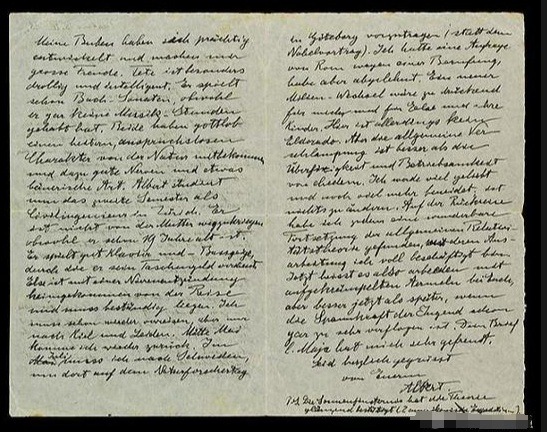 Meine Buben haben sich prächtig
entwickelt und machen mir
grosse Freude. Tete ist besonders
drollig und intelligent. Er spielt
schon Bach-Sonaten, obwohl
er gar keine Musik-Stunden
gehabt hat. Beide haben gottlob
einen heitern, anspruchslosen
Charakter von der Natur mitbekommen
und dazu gute Nerven und etwas
bäurische Art. Albert studiert
nun das zweite Semester als
Civilingenieur in Zürich. Er
ist nicht von der Mutter wegzukriegen
obwohl er schon 19 Jahre alt ist.
Er spielt gut Klavier und - Bassgeige,
durch die er sein Taschengeld verdient.
Else ist mit einer Nierenentzündung
heimgekommen von der Reise
und muss beständig liegen. Ich
muss schon wieder verreisen, aber nur
nach Kiel und Leiden. Mitte Mai
komme ich wieder zurück. Im
Juli muss ich nach Schweden,
um dort auf dem Naturforschertag
in Göteborg vorzutragen (statt dem
Nobelvortrag). Ich hatte eine Anfrage
von Rom wegen einer Berufung,
habe aber abgelehnt. Ein neuer
Milieu-Wechsel wäre zu drückend
für mich und für Else und ihre
Kinder. Hier ist allerdings kein
Eldorado. Aber die allgemeine Ver-
schlampung ist besser als die
und Betriebsamkeit
von ehedem. Ich werde viel geliebt
und noch viel mehr beneidet, ist
nichts zu ändern. Auf der Rückreise
habe ich eine wunderbare
Fortsetzung der allgemeinen Relativi-
tätstheorie gefunden, mit deren Aus-
arbeitung ich voll beschäftigt bin.
Jetzt heisst es also arbeiten mit
aufgekrempelten Ärmeln bei Euch,
aber besser jetzt als später, wenn
die Spannkraft der Jugend schon
gar zu sehr verflogen ist. Dein Brief
l. Maja hat mich sehr gefreut.
Seid herzlich gegrüsst
von Eurem
Albert.
P.S. Die Sonnenfinsternis hat die Theorie
glänzend bestätigt